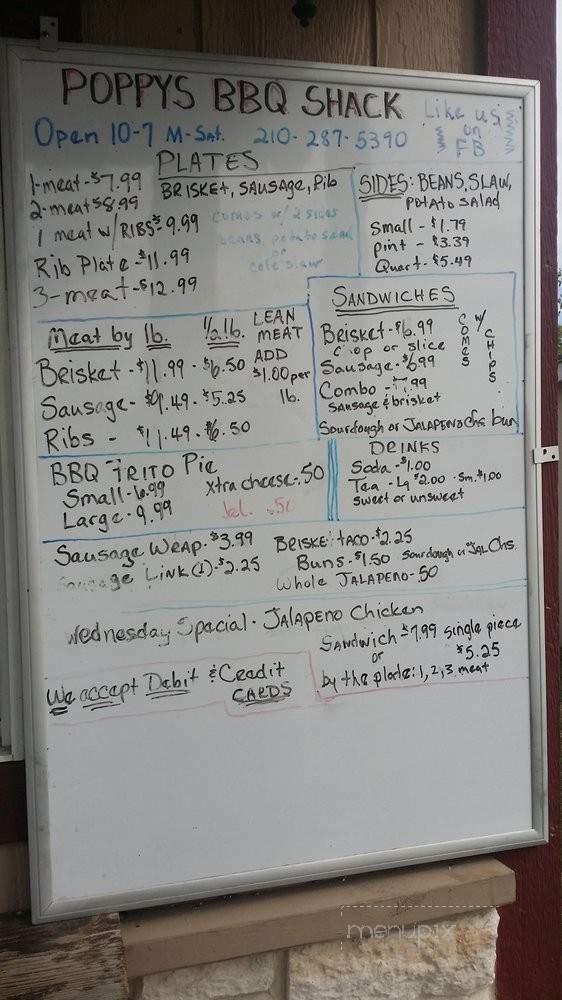 POPPYS BBQ SHACK
Like us
on
FB
Open 10-7 M-Sat. 210-287-5390
PLATES
BRISKET, SAUSAGE, Rib
1-meat-$7.99
2-meat $8.99
1 meat w/RIBS-$9.99
Rib Plate-$11.99
3-meat-$12.99
combos w/ 2 sides
beans, potato salad
or
cole slaw
SIDES: BEANS, SLAW,
POTATO SALAD
Small-$1.79
pint-$3.39
Quart-$5.49
Meat by lb. 1/2 lb.
Brisket-$11.99-$6.50
Sausage-$9.49-$5.25
Ribs-$11.49-$6.50
LEAN
MEAT
ADD
$1.00 per
lb.
SANDWICHES
Brisket-$6.99
chop or slice
Sausage-$6.99
Combo-$7.99
SAUSAGE & brisket
COMES W/ CHIPS
Sourdough or JALAPENO chs bun
BBQ FRITO Pie
Small-6.99
Large-9.99
Xtra cheese-.50
Jal.
DRINKS
Soda-$1.00
Tea-Lg $2.00-Sm.$1.00
sweet or unsweet
Sausage WRAP-$3.99
Sausage Link(1)-$2.25
BRISKET TACO-$2.25
Buns-$1.50 Sourdough or JAL Chs.
Whole JALAPENO-50
Wednesday Special-JALAPENO Chicken
SANDWICH-$7.99 Single piece
$5.25
or
by the plate: 1, 2, 3 meat
We accept Debit & Credit
CARDS
menupix